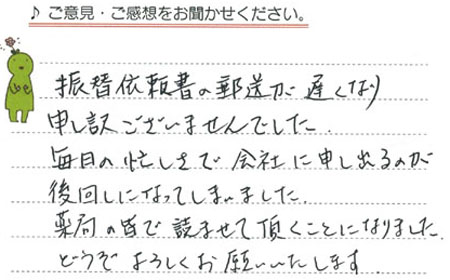 ♪ ご意見・ご感想をお聞かせください。
振替依頼書の郵送が遅くなり
申し訳ございませんでした.
毎日の忙しさで会社に申し出るのが
後回しになってしまいました.
薬局の皆で読ませて頂くことになりました.
どうぞよろしくお願いいたします.